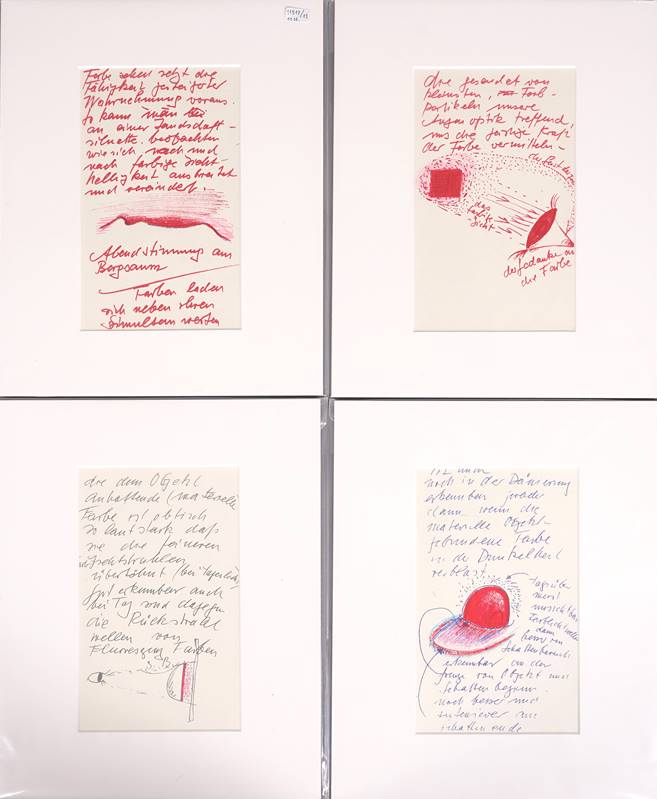 Farbe sehen setzt die
Fähigkeit gesteigerter
Wahrnehmung voraus.
so kann man bei
an einer Landschaft-
silhuette beobachten
wie sich nach und
nach farbige Licht-
helligkeit ausbreitet
und verändert.
Abendstimmung am
Bergsaum
Farben laden
sich neben ihren
Simultan werten
die gesendet von
kleinsten, Farb-
partikeln unsere
Augenoptik treffend,
uns die geistige Kraft
der Farbe vermitteln-
das
farbige
Licht
der Gedanke an
die Farbe
die dem Objekt
anhaftende (materielle
Farbe ist optisch
so lautstark daß
sie die feineren
Lichtstrahlen
übertönt (bei Tageslicht)
gut erkennbar auch
bei Tag sind dagegen
die Rückstrahl
wellen von
Fluoreszenz Farben
noch in der Dämmerung
erkennbar
dann wenn die
materielle Objekt-
gebundene Farbe
in der Dunkelheit
verblaßt
tagsüber
meist
unsichtbar
dann
besser im
Schattenbereich
erkennbar an der
von Objekt und
Schatten beginn.
noch besser und
intensiever am
Schattenende